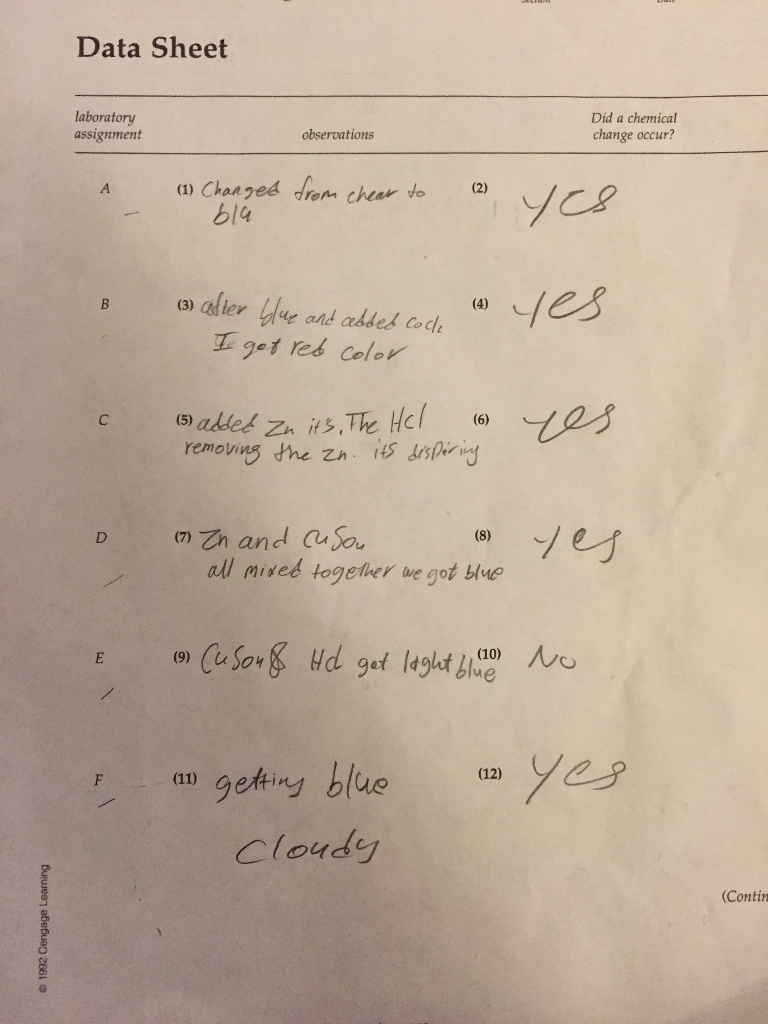 Data Sheet
laboratory assignment
observations
Did a chemical change occur?
A
(1) Changed from chear to
blu
(2) yes
B
(3) after blue and added
I got red color
(4) yes
C
(5) added Zn its, The Hcl
removing the Zn. its dispiring
(6) yes
D
(7) Zn and CuSou
all mixed together we got blue
(8) yes
E
(9) CuSou & Hcl get light blue
(10) No
F
(11) getting blue
Cloudy
(12) yes
(Contin
© 1992 Cengage Learning